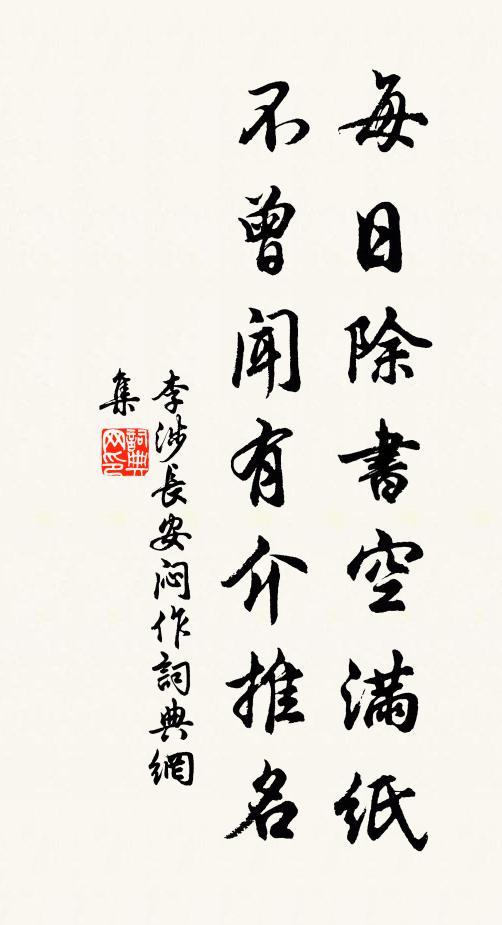 每日除書空滿紙
不曾聞有介推名
李涉長安悶作詞典網
集
詞典
网印